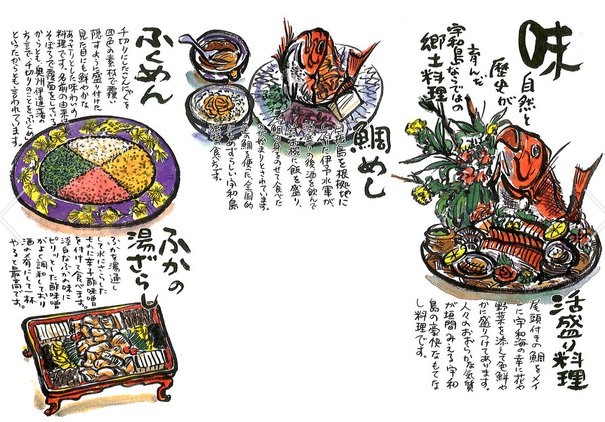 味
自然と
歴史が
育んだ
宇和島ならではの
郷土料理
活盛り料理
尾頭付きの鯛をメイ
ンに宇和海の幸に花や
野菜を添えて色鮮や
かに盛りつけてあります。
人々のおおらかな気質
が垣間みえる宇和
島の豪快なもてな
し料理です。
鯛めし
島を根拠地に
た伊予水軍が
の後酒を飲んで
椀に飯を盛り、
鯛の身をのせて食べた
がはじまりとされています。
の鯛を使った全国的
めずらしい宇和島
食べ方です。
ふくめん
千切りにしたこんにゃくを
四色の素材で覆い
隠すように盛り付けた
見た目にも鮮やかな
味わいの
料理です。名前の由来は
そぼろで覆面をしている
からとも、奥州伊達藩の
方言で千切りのことをふくめん
といったからとも言われています。
ふかの
湯ざらし
ふかを湯通し
して水にさらした
ものに辛子酢味噌
を付けて食べます。
淡白なふかの味に
ピリッとした酢味噌
がよく調和しており
酒の肴にして一杯
やると最高です。